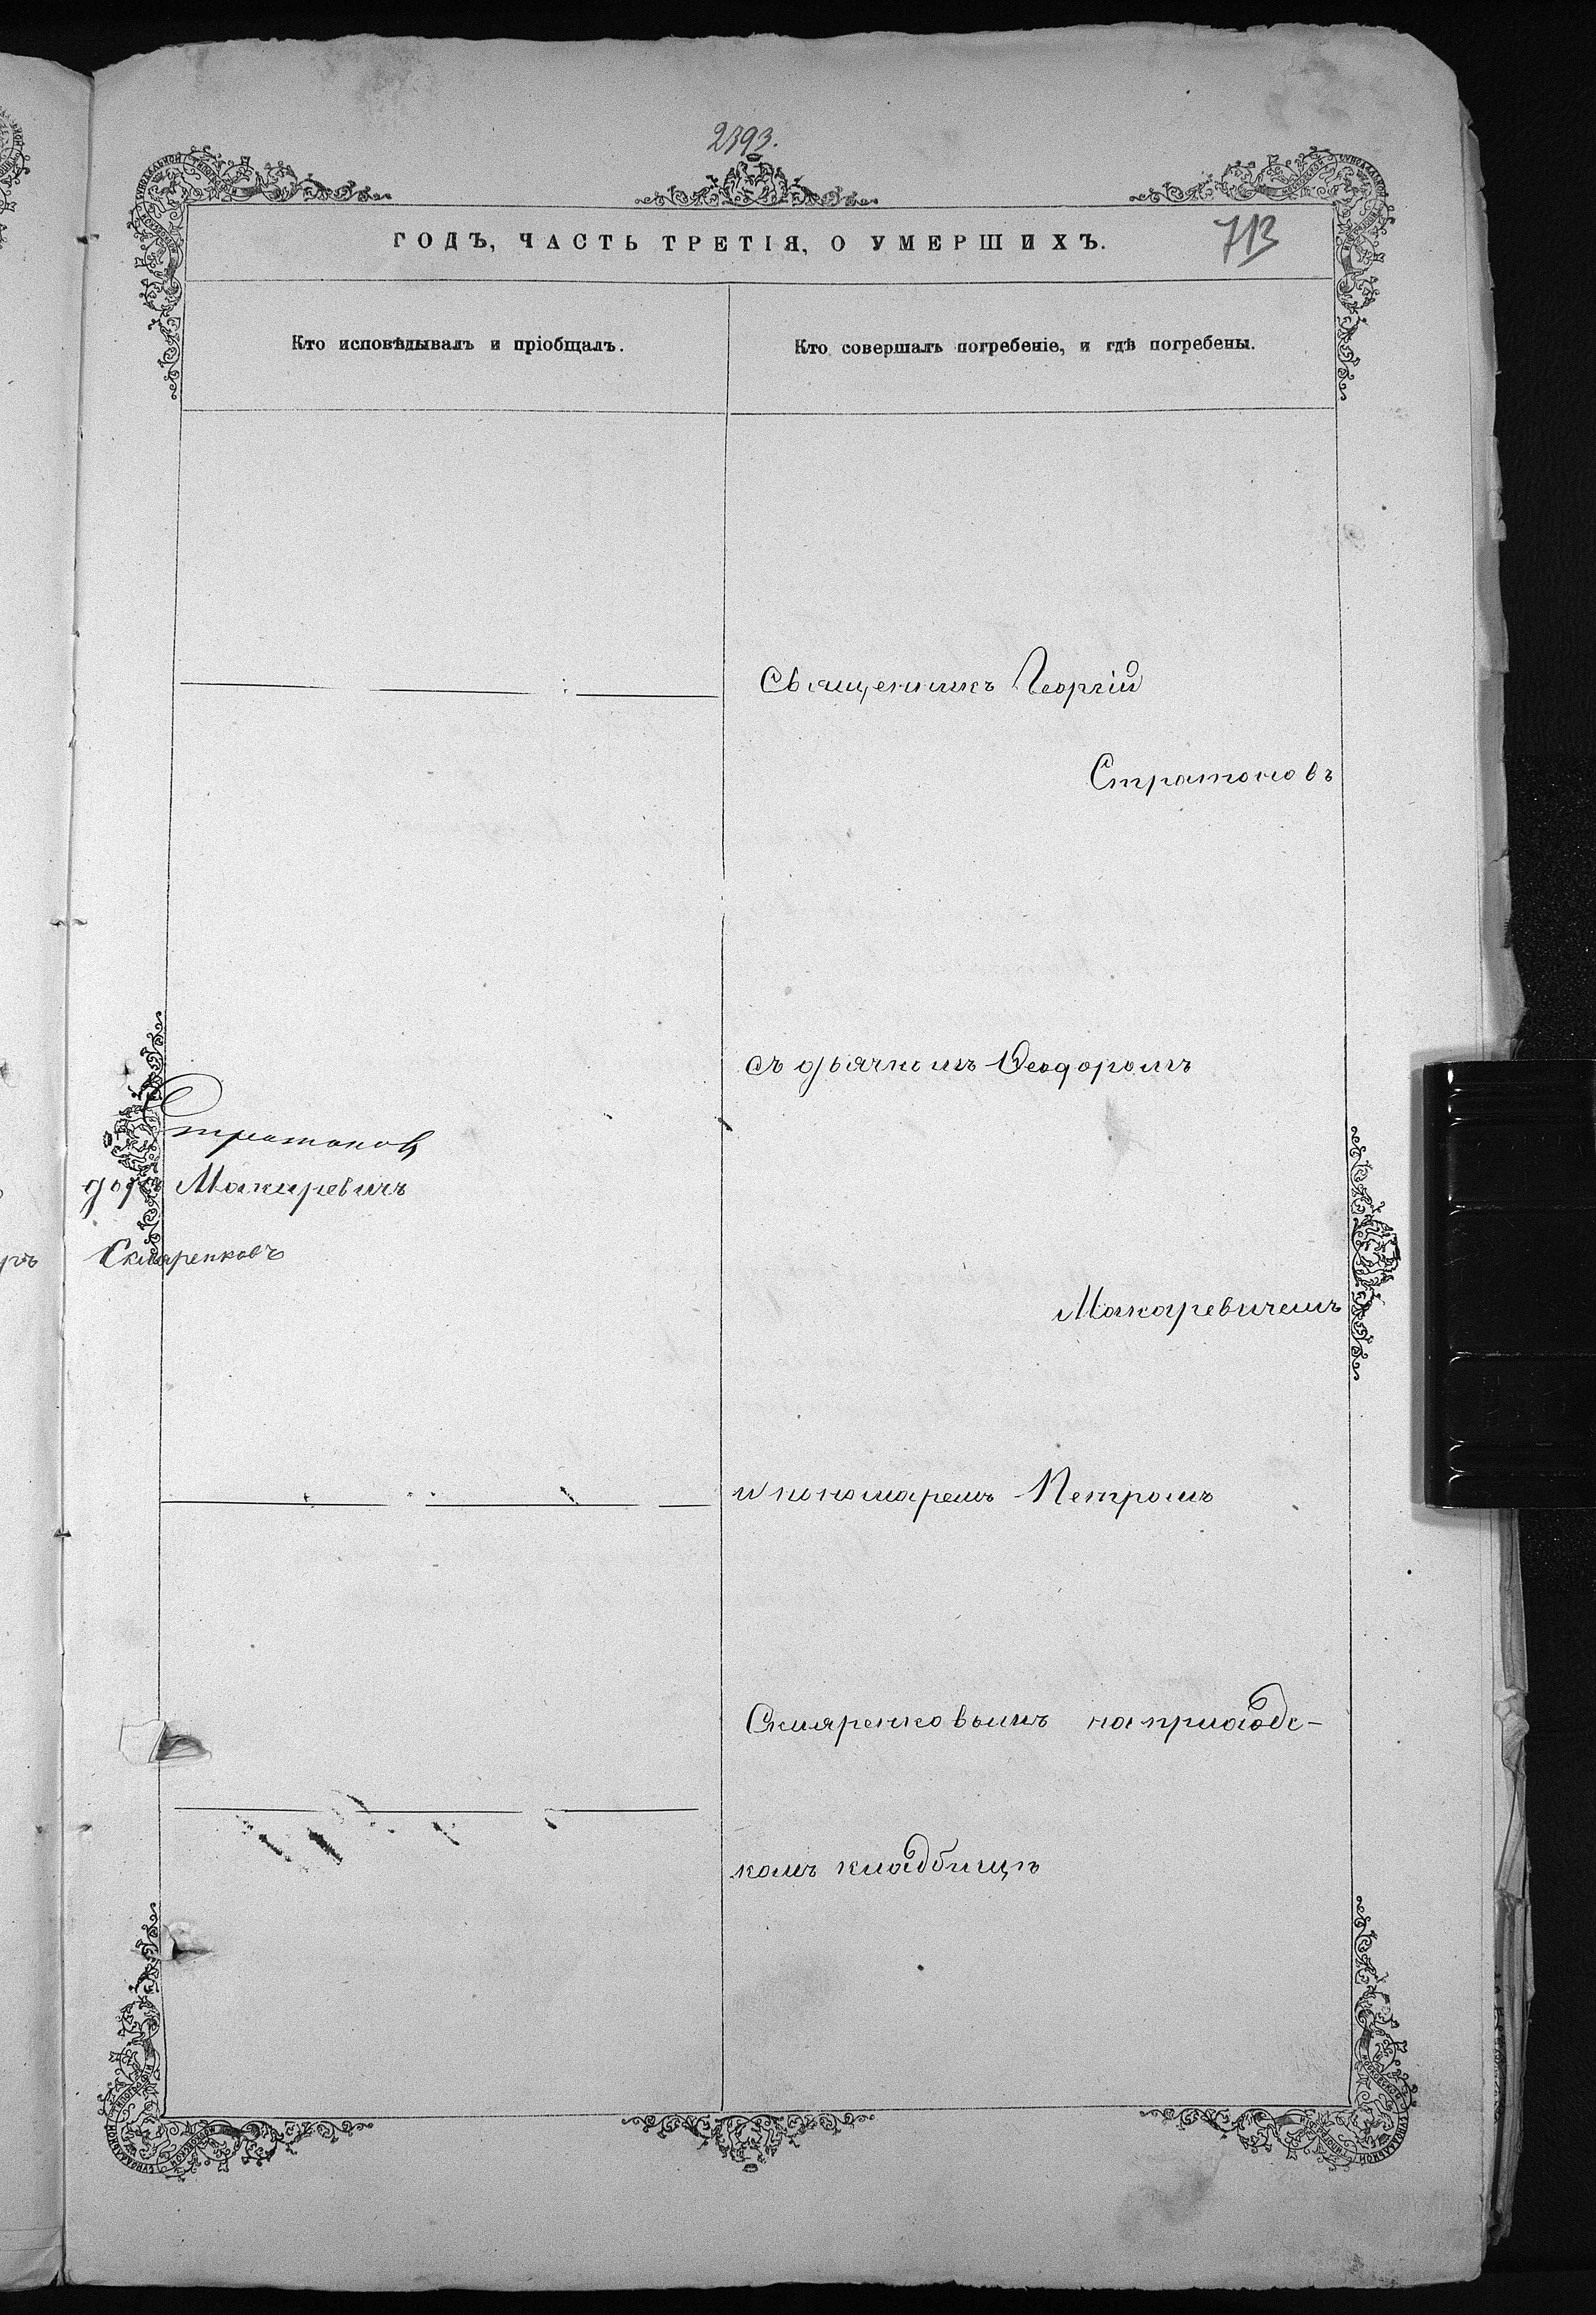 2393.
ГОДЪ, ЧАСТЬ ТРЕТІЯ, О УМЕРШИХЪ.
713
Кто исповѣдывалъ и пріобщалъ.
Кто совершалъ погребеніе, и гдѣ погребены.
Священникъ Георгій
Стратоновъ
съ дьячкомъ Ѳеодоромъ
Стратонов
доръ Макаревичъ
Скляренковъ
Макаревичемъ
и пономаремъ Петромъ
Скляренковымъ на приходс-
комъ кладбищѣ